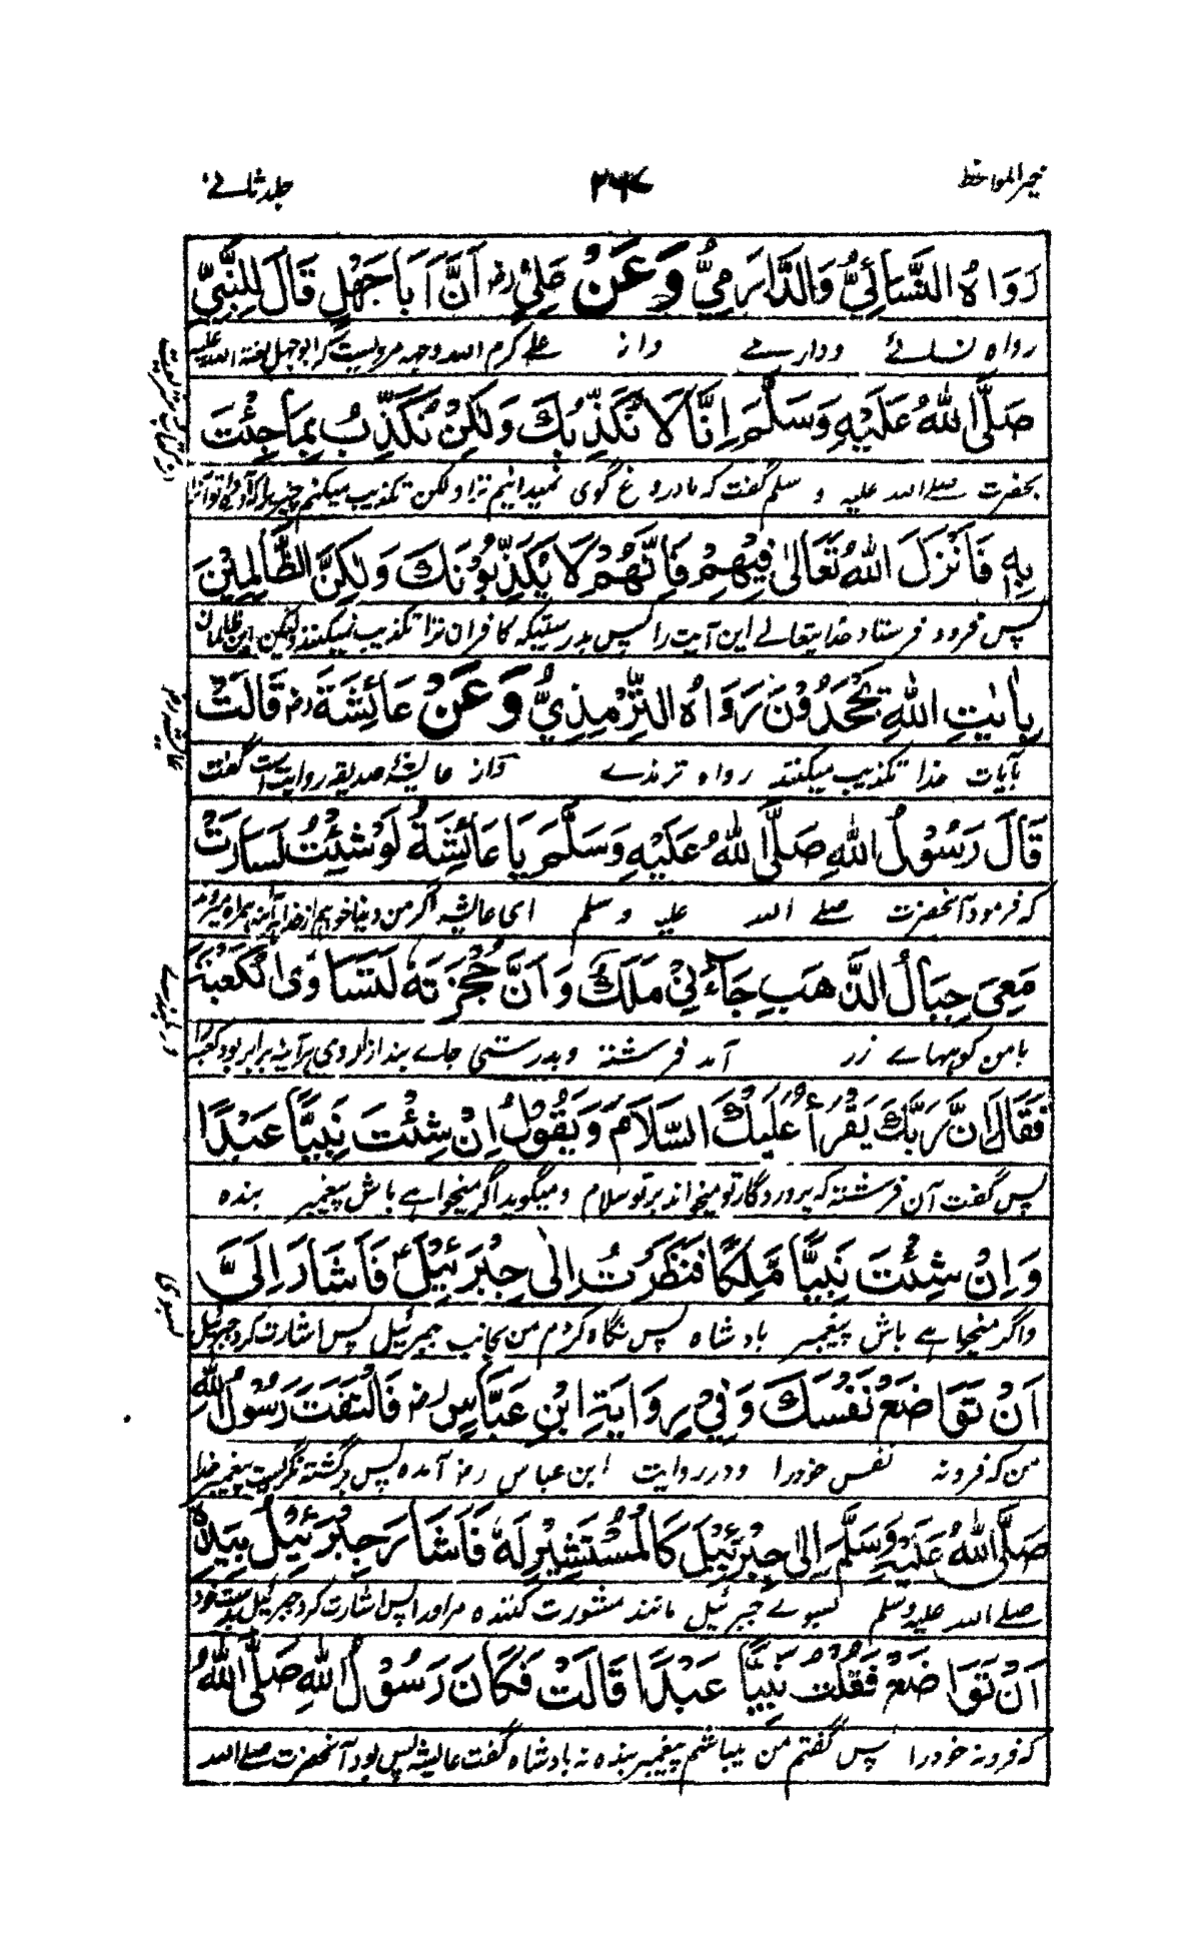 خیر المواعظ ۲۶۷ جلد ثانی
رَوَاهُ النَّسَائِيُّ وَالدَّارِمِيُّ وَعَنْ عَلِيٍّ رضـ اَنَّ اَبَا جَهْلٍ قَالَ لِلنَّبِيِّ
رواه نسائے ودارمے واز علے کرم الله وجہہ مرویست کہ ابو جہل لعنۃ الله علیہ
صَلَّى اللّٰهُ عَلَيْهِ وَسَلَّمَ اِنَّا لَا نُكَذِّبُكَ وَلٰكِنْ نُكَذِّبُ بِمَا جِئْتَ
بحضرت صلے الله علیہ و سلم گفت کہ ما دروغ گوی نمیدانیم ترا ولکن تکذیب میکنم
بِهٖ فَاَنْزَلَ اللّٰهُ تَعَالٰى فِيْهِمْ فَاِنَّهُمْ لَا يُكَذِّبُوْنَكَ وَلٰكِنَّ الظّٰلِمِيْنَ
پس فرود فرستاد خدایتعالے این آیت را پس بدرستیکہ کافران ترا تکذیب نمیکنند ولیکن این ظالمان
بِاٰيٰتِ اللّٰهِ يَجْحَدُوْنَ رَوَاهُ التِّرْمِذِيُّ وَعَنْ عَائِشَةَ رضـ قَالَتْ
بآیات خدا تکذیب میکنند رواه ترمذے واز عایشۂ صدیقہ روایت است گفت
قَالَ رَسُوْلُ اللّٰهِ صَلَّى اللّٰهُ عَلَيْهِ وَسَلَّمَ يَا عَائِشَةُ لَوْ شِئْتُ لَسَارَتْ
کہ فرمود آنحضرت صلے الله علیہ و سلم ای عایشہ اگر من دنیا خواہم از خدا ہر آینہ ہمراہ میرود
مَعِيَ جِبَالُ الذَّهَبِ جَآءَنِيْ مَلَكٌ وَاَنَّ حُجْزَتَهٗ لَتُسَاوِى الْكَعْبَةَ
با من کوہہاے زر آمد فرشتہ و بدرستی جاے بند ازار وی ہر آینہ برابر بود کعبہ را
فَقَالَ اِنَّ رَبَّكَ يَقْرَأُ عَلَيْكَ السَّلَامَ وَيَقُوْلُ اِنْ شِئْتَ نَبِيًّا عَبْدًا
پس گفت آن فرشتہ کہ پروردگار تو میخواند بر تو سلام و میگوید اگر میخواہے باش پیغمبر بنده
وَاِنْ شِئْتَ نَبِيًّا مَلِكًا فَنَظَرْتُ اِلٰى جِبْرَئِيْلَ فَاَشَارَ اِلَيَّ
واگر میخواہے باش پیغمبر بادشاه پس نگاه کردم من بجانب جبرئیل پس اشارت کرد جبرئیل
اَنْ تَوَاضَعْ نَفْسَكَ وَفِيْ رِوَايَةِ ابْنِ عَبَّاسٍ رضـ فَالْتَفَتَ رَسُوْلُ اللّٰهِ
من کہ فرونہ نفس خود را ودر روایت ابن عباس رضـ آمده پس برگشتہ نگریست پیغمبر خدا
صَلَّى اللّٰهُ عَلَيْهِ وَسَلَّمَ اِلٰى جِبْرَئِيْلَ كَالْمُسْتَشِيْرِ لَهٗ فَاَشَارَ جِبْرَئِيْلُ بِيَدِهٖ
صلے الله علیہ وسلم بسوے جبرئیل مانند مشورت کننده مر او را پس اشارت کرد جبرئیل بدست خود
اَنْ تَوَاضَعْ فَقُلْتُ نَبِيًّا عَبْدًا قَالَتْ فَكَانَ رَسُوْلُ اللّٰهِ صَلَّى اللّٰهُ
کہ فرونہ خود را پس گفتم من میباشم پیغمبر بنده نہ بادشاه گفت عایشہ پس بود آنحضرت صلے الله